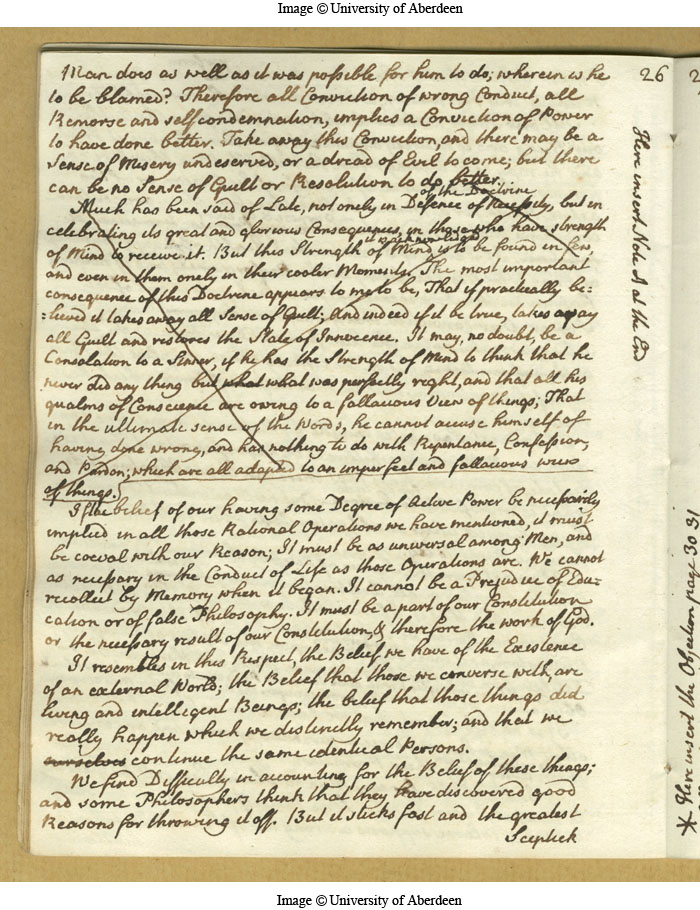 Image © University of Aberdeen
26
Man does as well as it was possible for him to do; wherein is he
to be blamed? Therefore all Conviction of wrong Conduct, all
Remorse and self condemnation, implies a Conviction of Power
to have done better. Take away this Conviction, and there may be a
Sense of Misery undeserved, or a dread of Evil to come; but there
can be no Sense of Guilt or Resolution to do better.
of the Doctrine
Much has been said of Late, not onely in Defence of Necessity, but in
celebrating its great and glorious Consequences, in those who have strength
of Mind to receive it. But this Strength of Mind is to be found in few,
it is acknowledged
and even in them onely in their cooler Moments. The most important
consequence of this Doctrine appears to me to be, That if practically be=
=lieved it takes away all Sense of Guilt; And indeed if it be true, takes away
all Guilt and restores the State of Innocence. It may, no doubt, be a
Consolation to a Sinner, if he has the Strength of Mind to think that he
never did any thing but what what was perfectly right, and that all his
qualms of Conscience are owing to a fallacious View of things; That
in the ultimate sense of the Words, he cannot accuse himself of
having done wrong, and has nothing to do with Repentance, Confession,
and Pardon; which are all adapted to an imperfect and fallacious view
of things.
If the belief of our having some Degree of Active Power be necessarily
implied in all those Rational Operations we have mentioned, it must
be coeval with our Reason; It must be as universal among Men, and
as necessary in the Conduct of Life as those Operations are. We cannot
recollect by Memory when it began. It cannot be a Prejudice of Edu=
cation or of false Philosophy. It must be a part of our Constitution
or the necessary result of our Constitution, & therefore the work of God.
It resembles in this Respect, the Belief we have of the Existence
of an external World; the Belief that those we converse with, are
living and intelligent Beings; the belief that those things did
really happen which we distinctly remember; and that we
ourselves continue the same identical Persons.
We find Difficulty in accounting for the Belief of these things;
and some Philosophers think that they have discovered good
Reasons for throwing it off. But it sticks fast and the greatest
Sceptick
Here insert Note A at the End
* Here insert the Objection page 30 31
Image © University of Aberdeen